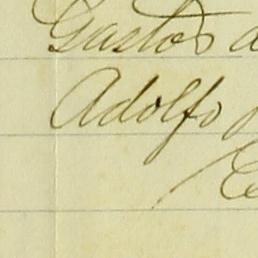 Gastos d
Adolfo